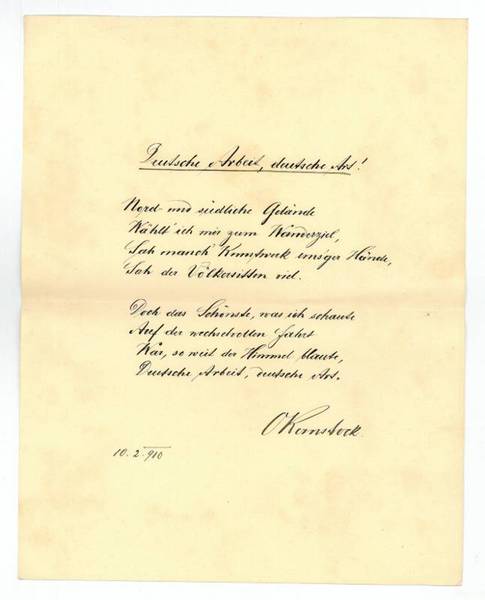 Deutsche Arbeit, deutsche Art!
Nord- und südliche Gelände
Wählt' ich mir zum Wanderziel,
Sah manch' Kunstwerk ems'ger Hände,
Sah der Völkersitten viel.
Doch das Schönste, was ich schaute
Auf der wechselvollen Fahrt
War, so weit der Himmel blaute,
Deutsche Arbeit, deutsche Art.
OKernstock
10. 2. 910